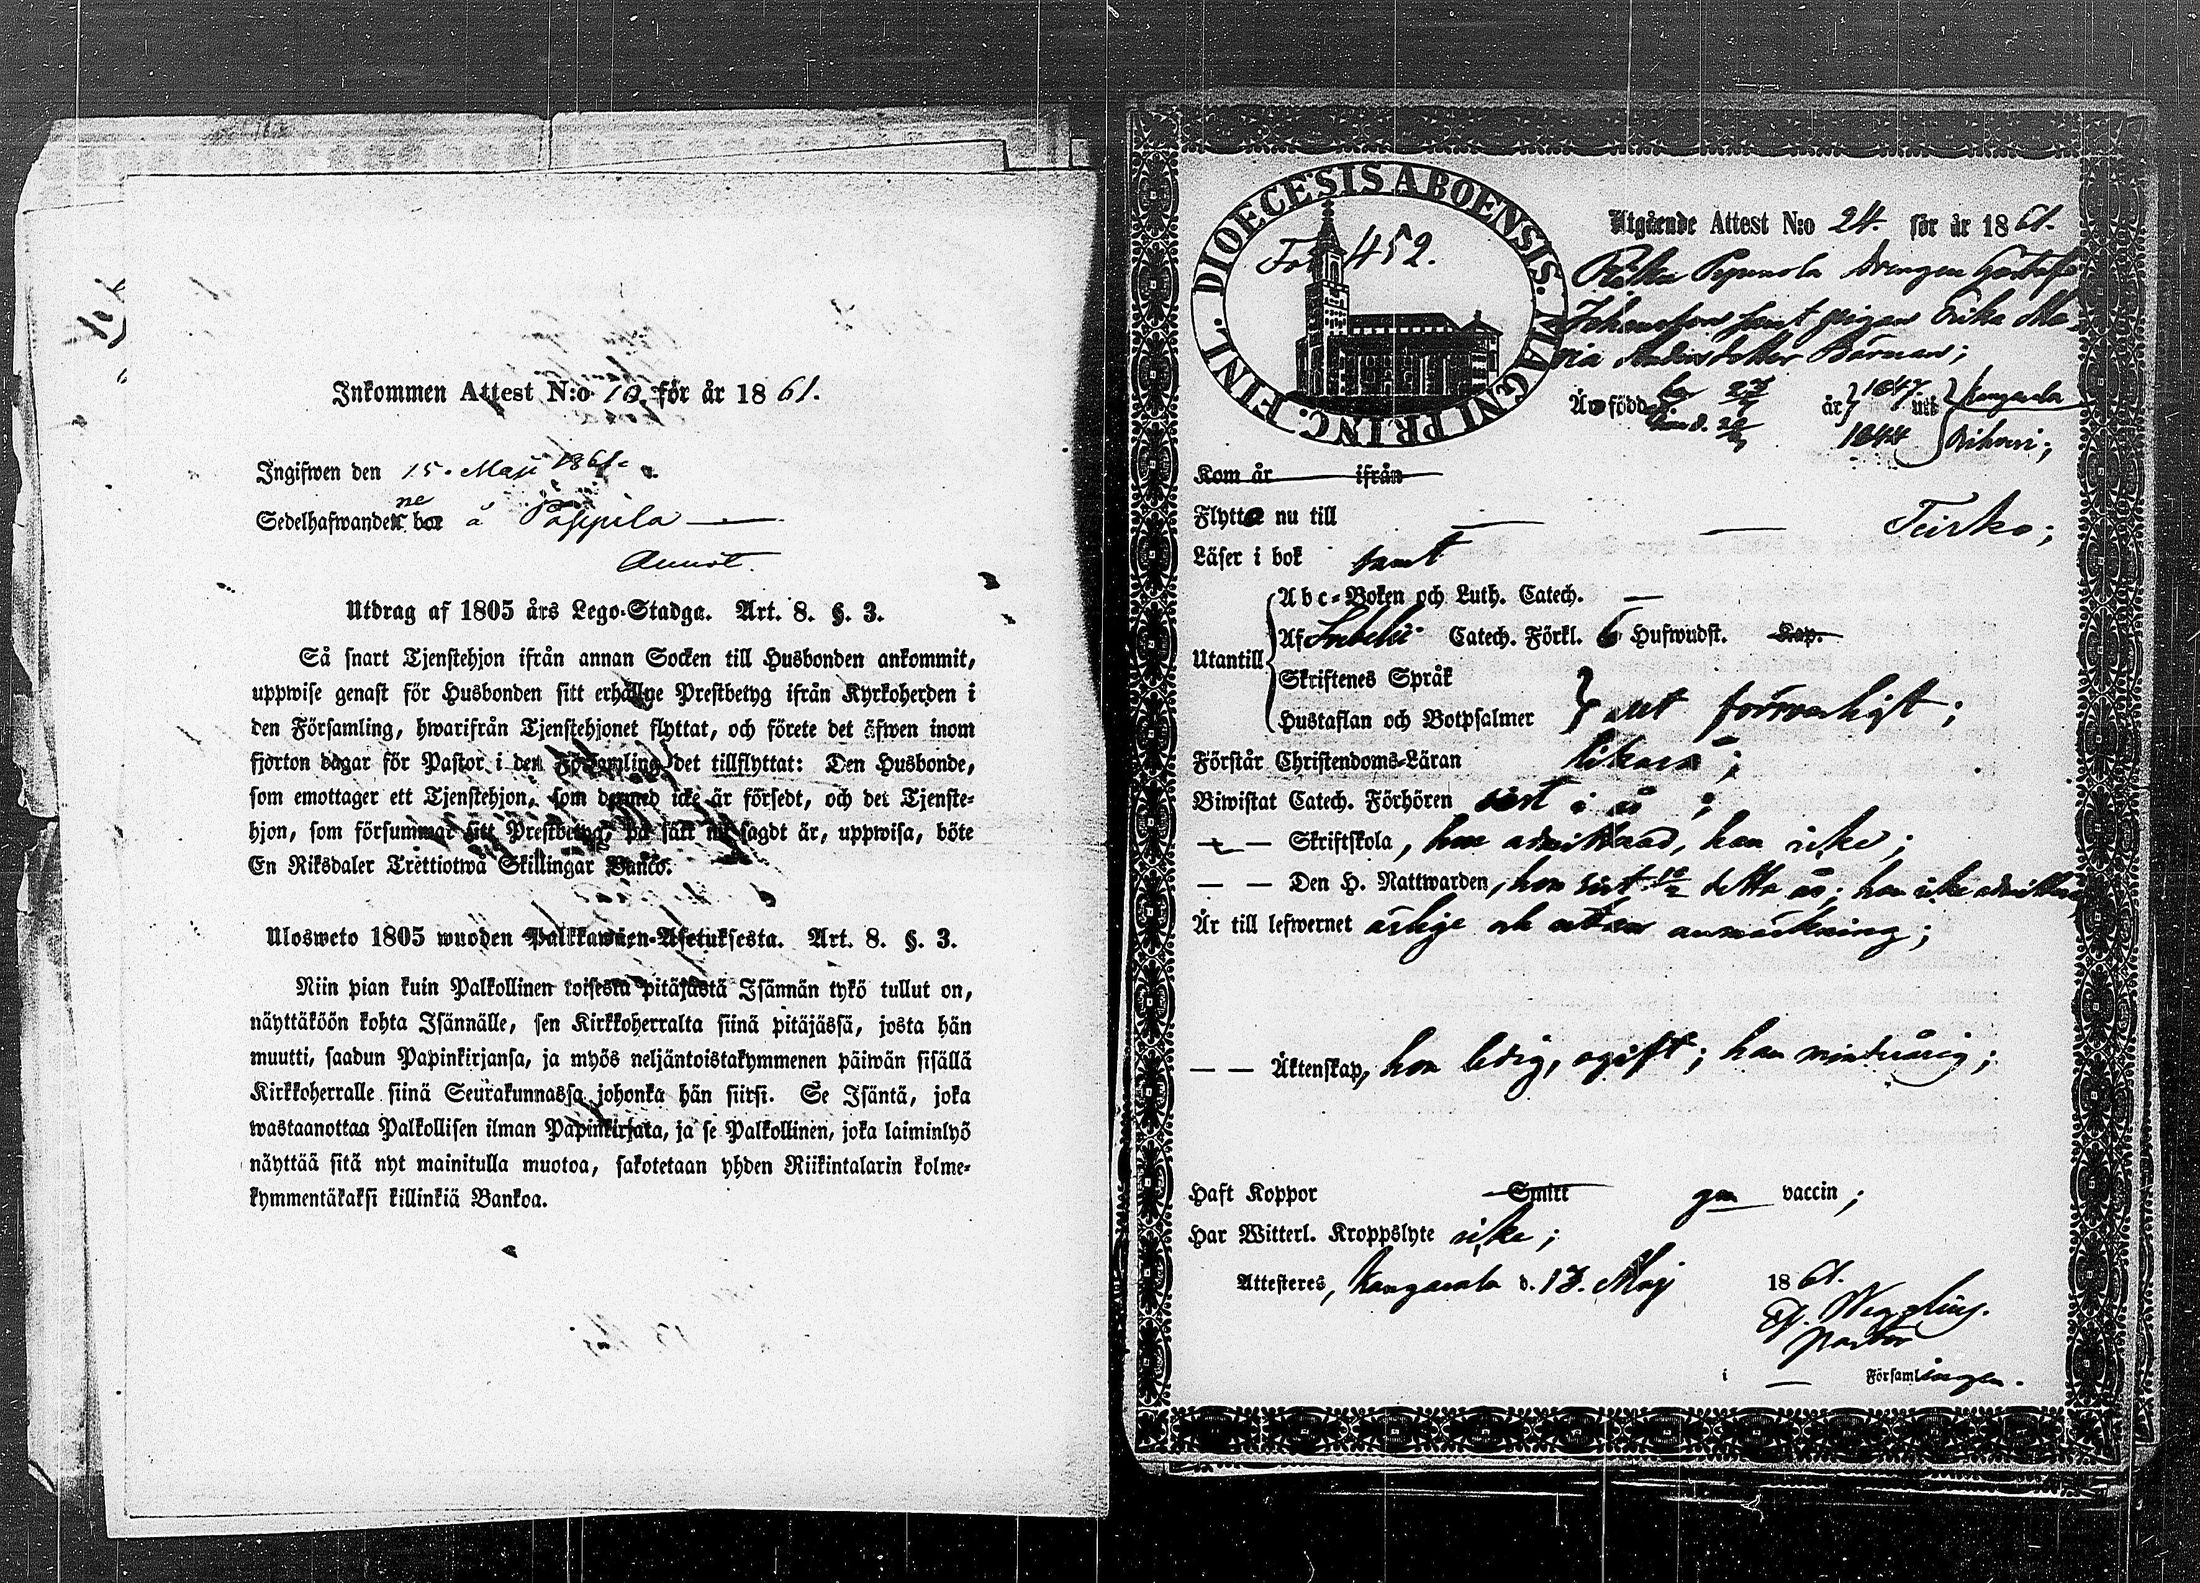 Inkommen Attest N:o 10. för år 1861.
Ingifwen den 15. Maji 1861.
Sedelhafwanden ne bor å Pappila —
Utdrag af 1805 års Lego-Stadga. Art. 8. §. 3.
Så snart Tjenstehjon ifrån annan Socken till Husbonden ankommit,
uppwise genast för Husbonden sitt erhållne Prestbetyg ifrån Kyrkoherden i
den Församling, hwarifrån Tjenstehjonet flyttat, och förete det äfwen inom
fjorton dagar för Pastor i den Församling det tillflyttat: Den Husbonde,
som emottager ett Tjenstehjon, som dermed icke är försedt, och det Tjenste-
hjon, som försummar sitt Prestbetyg, på sätt nu sagdt är, uppwisa, böte
En Riksdaler Trettiotwå Skillingar Banco.
Ulosweto 1805 wuoden Palkkawäen-Asetuksesta. Art. 8. §. 3.
Niin pian kuin Palkollinen toisesta pitäjästä Isännän tykö tullut on,
näyttäköön kohta Isännälle, sen Kirkkoherralta siinä pitäjässä, josta hän
muutti, saadun Papinkirjansa, ja myös neljäntoistakymmenen päiwän sisällä
Kirkkoherralle siinä Seurakunnassa johonka hän siirsi. Se Isäntä, joka
wastaanottaa Palkollisen ilman Papinkirjata, ja se Palkollinen, joka laiminlyö
näyttää sitä nyt mainitulla muotoa, sakotetaan yhden Riikintalarin kolme-
kymmentäkaksi killinkiä Bankoa.
DIOECESIS ABOENSIS. MAGNI PRINC. FINL.
Fol 452.
Utgående Attest N:o 24. för år 1861.
drengen Gustaf
Johansson samt pigan Erika Ma-
ria Andersdotter
Är född 27 år 1847 uti Kangasala
hon d. 1844
Kom år ifrån
Flytta nu till — — Teisko;
Läser i bok samt
Abc-Boken och Luth. Catech. —
Utantill
Af Svebelii Catech. Förkl. 6 Hufwudst. Kap.
Skriftenes Språk
Hustaflan och Botpsalmer
Förstår Christendoms-Läran likaså;
Biwistat Catech. Förhören sist i år;
— — Skriftskola, hon admitterad, han icke;
— — Den H. Nattwarden, hon sist detta år; han icke admitterad
Är till lefwernet ärlige och utan anmärkning;
— — Äktenskap, hon ledig, ogift; han minderårig;
Haft Koppor Smitt gm vaccin;
Har Witterl. Kroppslyte icke;
Attesteres, Kangasala d. 13. Maj 1861.
Pastor
i — Församlingen.